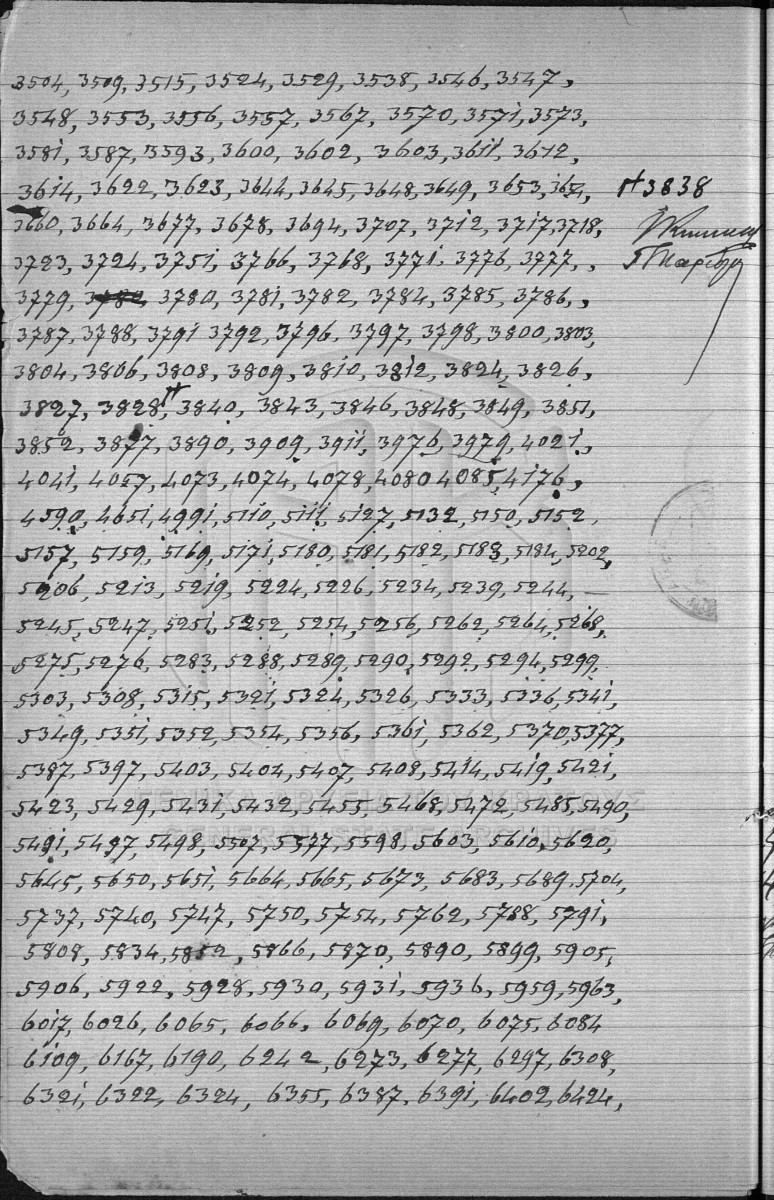 3504, 3509, 3515, 3524, 3529, 3538, 3546, 3547,
3548, 3553, 3556, 3557, 3567, 3570, 3571, 3573,
3581, 3587, 3593, 3600, 3602, 3603, 3611, 3612,
3614, 3622, 3623, 3644, 3645, 3648, 3649, 3653, 3654, # 3838
3660, 3664, 3677, 3678, 3694, 3707, 3712, 3717, 3718,
3723, 3724, 3751, 3766, 3768, 3771, 3776, 3777,
3779, 3780, 3781, 3782, 3784, 3785, 3786,
3787, 3788, 3791 3792, 3796, 3797, 3798, 3800, 3803,
3804, 3806, 3808, 3809, 3810, 3812, 3824, 3826,
3827, 3828, # 3840, 3843, 3846, 3848, 3849, 3851,
3852, 3877, 3890, 3909, 3911, 3976, 3979, 4021,
4041, 4057, 4073, 4074, 4078, 4080 4085, 4176,
4590, 4651, 4991, 5110, 5111, 5127, 5132, 5150, 5152,
5157, 5159, 5169, 5171, 5180, 5181, 5182, 5183, 5184, 5202,
5206, 5213, 5219, 5224, 5226, 5234, 5239, 5244, —
5245, 5247, 5251, 5252, 5254, 5256, 5262, 5264, 5268,
5275, 5276, 5283, 5288, 5289, 5290, 5292, 5294, 5299,
5303, 5308, 5315, 5321, 5324, 5326, 5333, 5336, 5341,
5349, 5351, 5352, 5354, 5356, 5361, 5362, 5370, 5377,
5387, 5397, 5403, 5404, 5407, 5408, 5414, 5419, 5421,
5423, 5429, 5431, 5432, 5455, 5468, 5472, 5485, 5490,
5491, 5497, 5498, 5507, 5577, 5598, 5603, 5610, 5620,
5645, 5650, 5651, 5664, 5665, 5673, 5683, 5689, 5704,
5737, 5740, 5747, 5750, 5754, 5762, 5788, 5791,
5808, 5834, 5852, 5866, 5870, 5890, 5899, 5905,
5906, 5922, 5928, 5930, 5931, 5936, 5959, 5963,
6017, 6026, 6065, 6066, 6069, 6070, 6075, 6084
6109, 6167, 6190, 6242, 6273, 6277, 6297, 6308,
6321, 6322, 6324, 6355, 6387, 6391, 6402, 6424,
ΓΕΝΙΚΑ ΑΡΧΕΙΑ ΤΟΥ ΚΡΑΤΟΥΣ
GENERAL STATE ARCHIVES